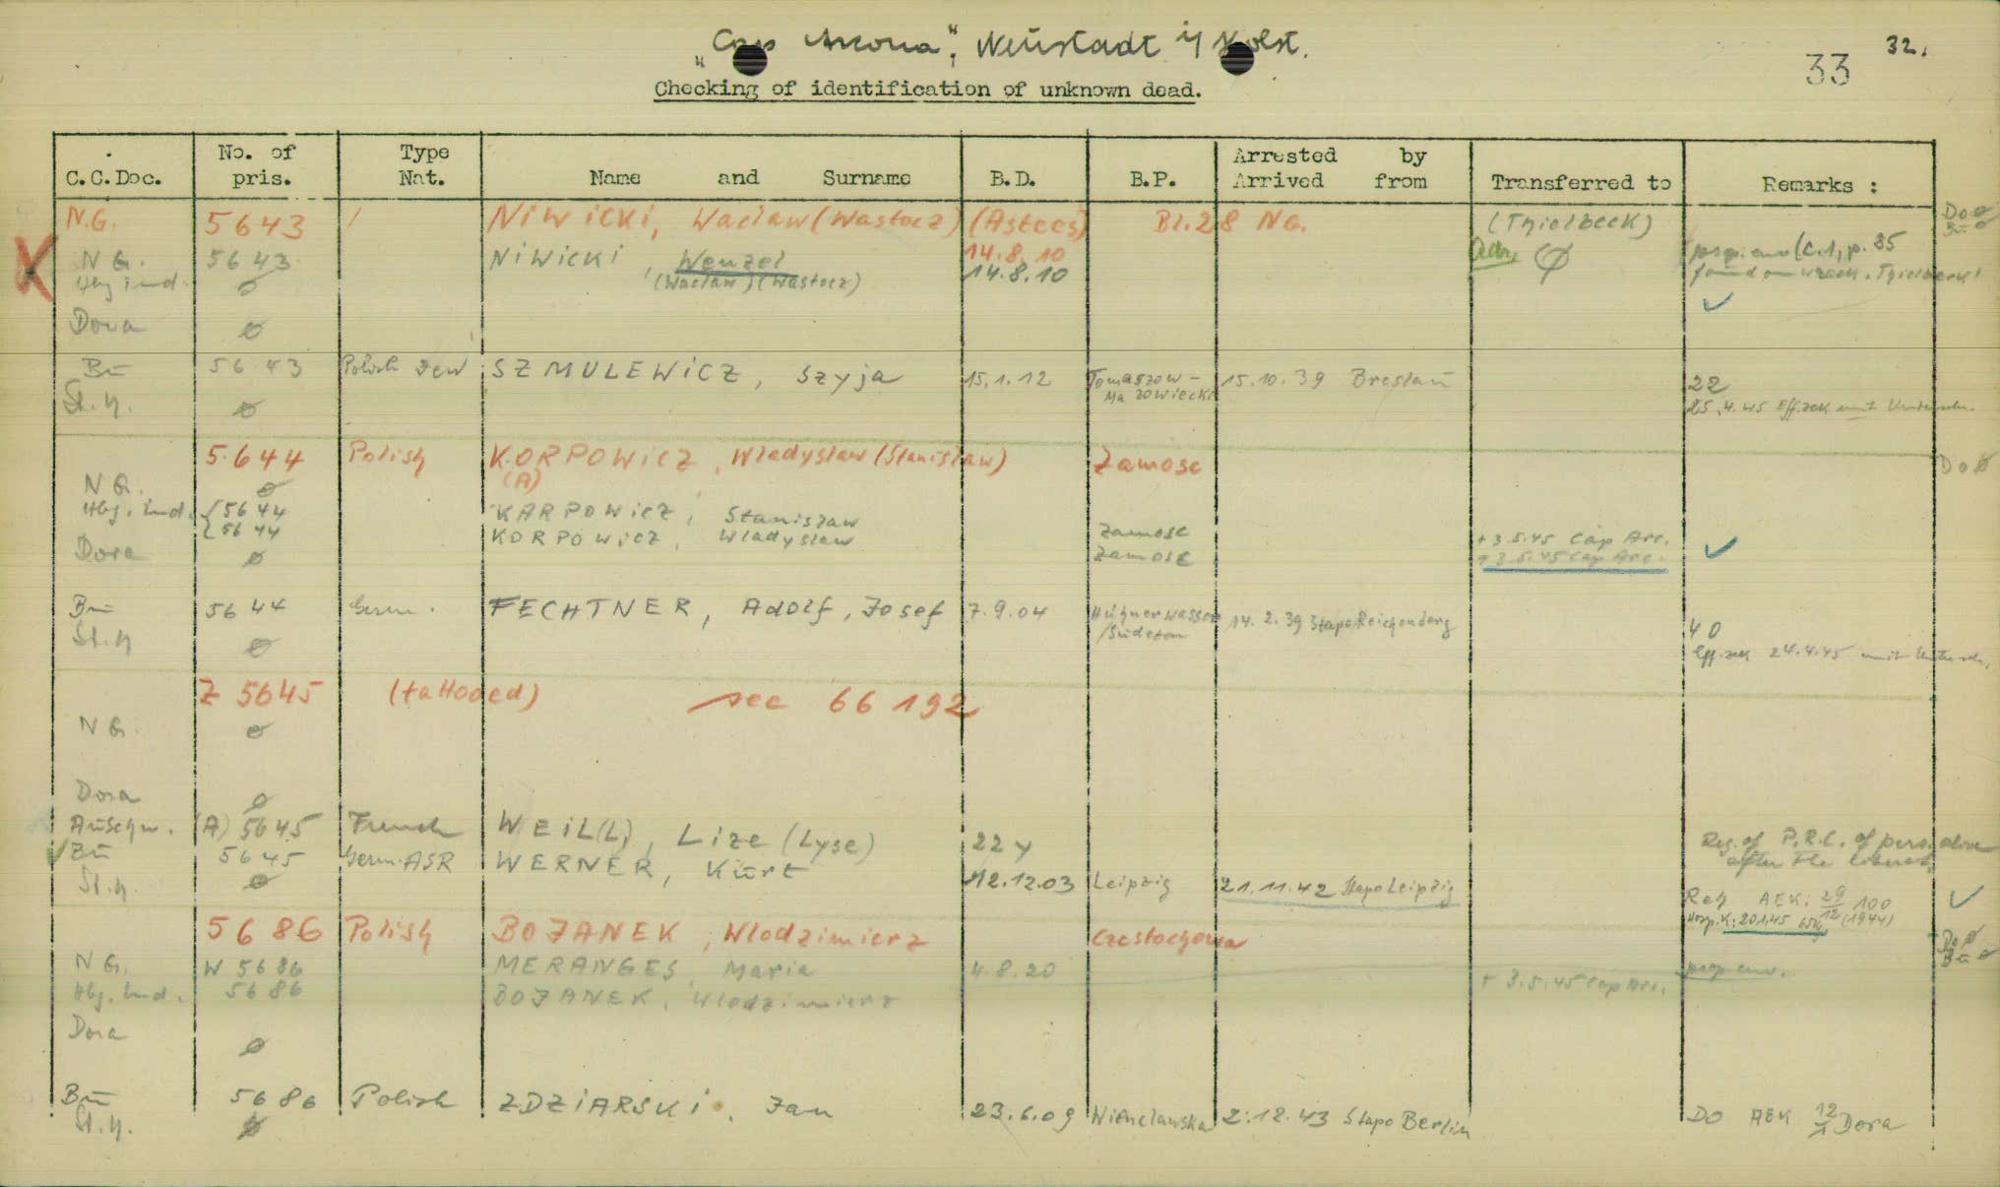 "Cap Arcona", Neustadt i/Holst.
33 32.
Checking of identification of unknown dead.
C.C.Doc. No. of pris. Type Nat. Name and Surname B.D. B.P. Arrested by Arrived from Transferred to Remarks :
N.G. 5643 / NIWICKI, Waclaw (Wastocz) (Astces) Bl.28 NG. (Thielbeck)
14.8.10
N G. 5643 NIWICKI, Wenzel 14.8.10 Ø prop. env (C.1, p. 35
Hbg ind. ø (Waclaw) (Wastocz) found on wreck. Thielbeck)
Dora ø ✓
Bū 5643 Polish Jew SZMULEWICZ, Szyja 15.1.12 Tomaszow-Mazowiecki 15.10.39 Breslau 22
St.H. ø 25.4.45 Eff.zek mit
5644 Polish KORPOWICZ, Wladyslaw (Stanislaw) Zamosc Do ø
(A)
N G. ø
Hbg. ind. { 5644 KARPOWICZ, Stanislaw Zamosc +3.5.45 Cap Arc.
{ 5644 KORPOWICZ, Wladyslaw Zamosc +3.5.45 Cap Arc. ✓
Dora ø
Bū 5644 Germ. FECHTNER, Adolf, Josef 7.9.04 Hühnerwasser /Sudeten 14.2.39 Stapo Reichenberg 40
St.H ø 24.4.45 mit
Z 5645 (tattooed) see 66192
N G. ø
Dora ø
Auschw. (A) 5645 French WEIL(L), Lize (Lyse) 22 y Reg. of P.R.C. of pers. alive after the liberat.
✓ Bū 5645 Germ. ASR WERNER, Kurt 12.12.03 Leipzig 21.11.42 Stapo Leipzig AEK: 29/12 100 ✓
St.H. ø Hosp.K: 20.1.45 (1944)
5686 Polish BOJANEK, Wlodzimierz Czestochowa Do ø
Bū ø
N G. W 5686 MERANGES, Maria 4.8.20 prop env.
Hbg. ind. 5686 BOJANEK, Wlodzimierz + 3.5.45 Cap Arc.
Dora ø
Bū 5686 Polish ZDZIARSKI, Jan 23.6.09 2.12.43 Stapo Berlin DO AEK 12/1 Dora
St.H. ø